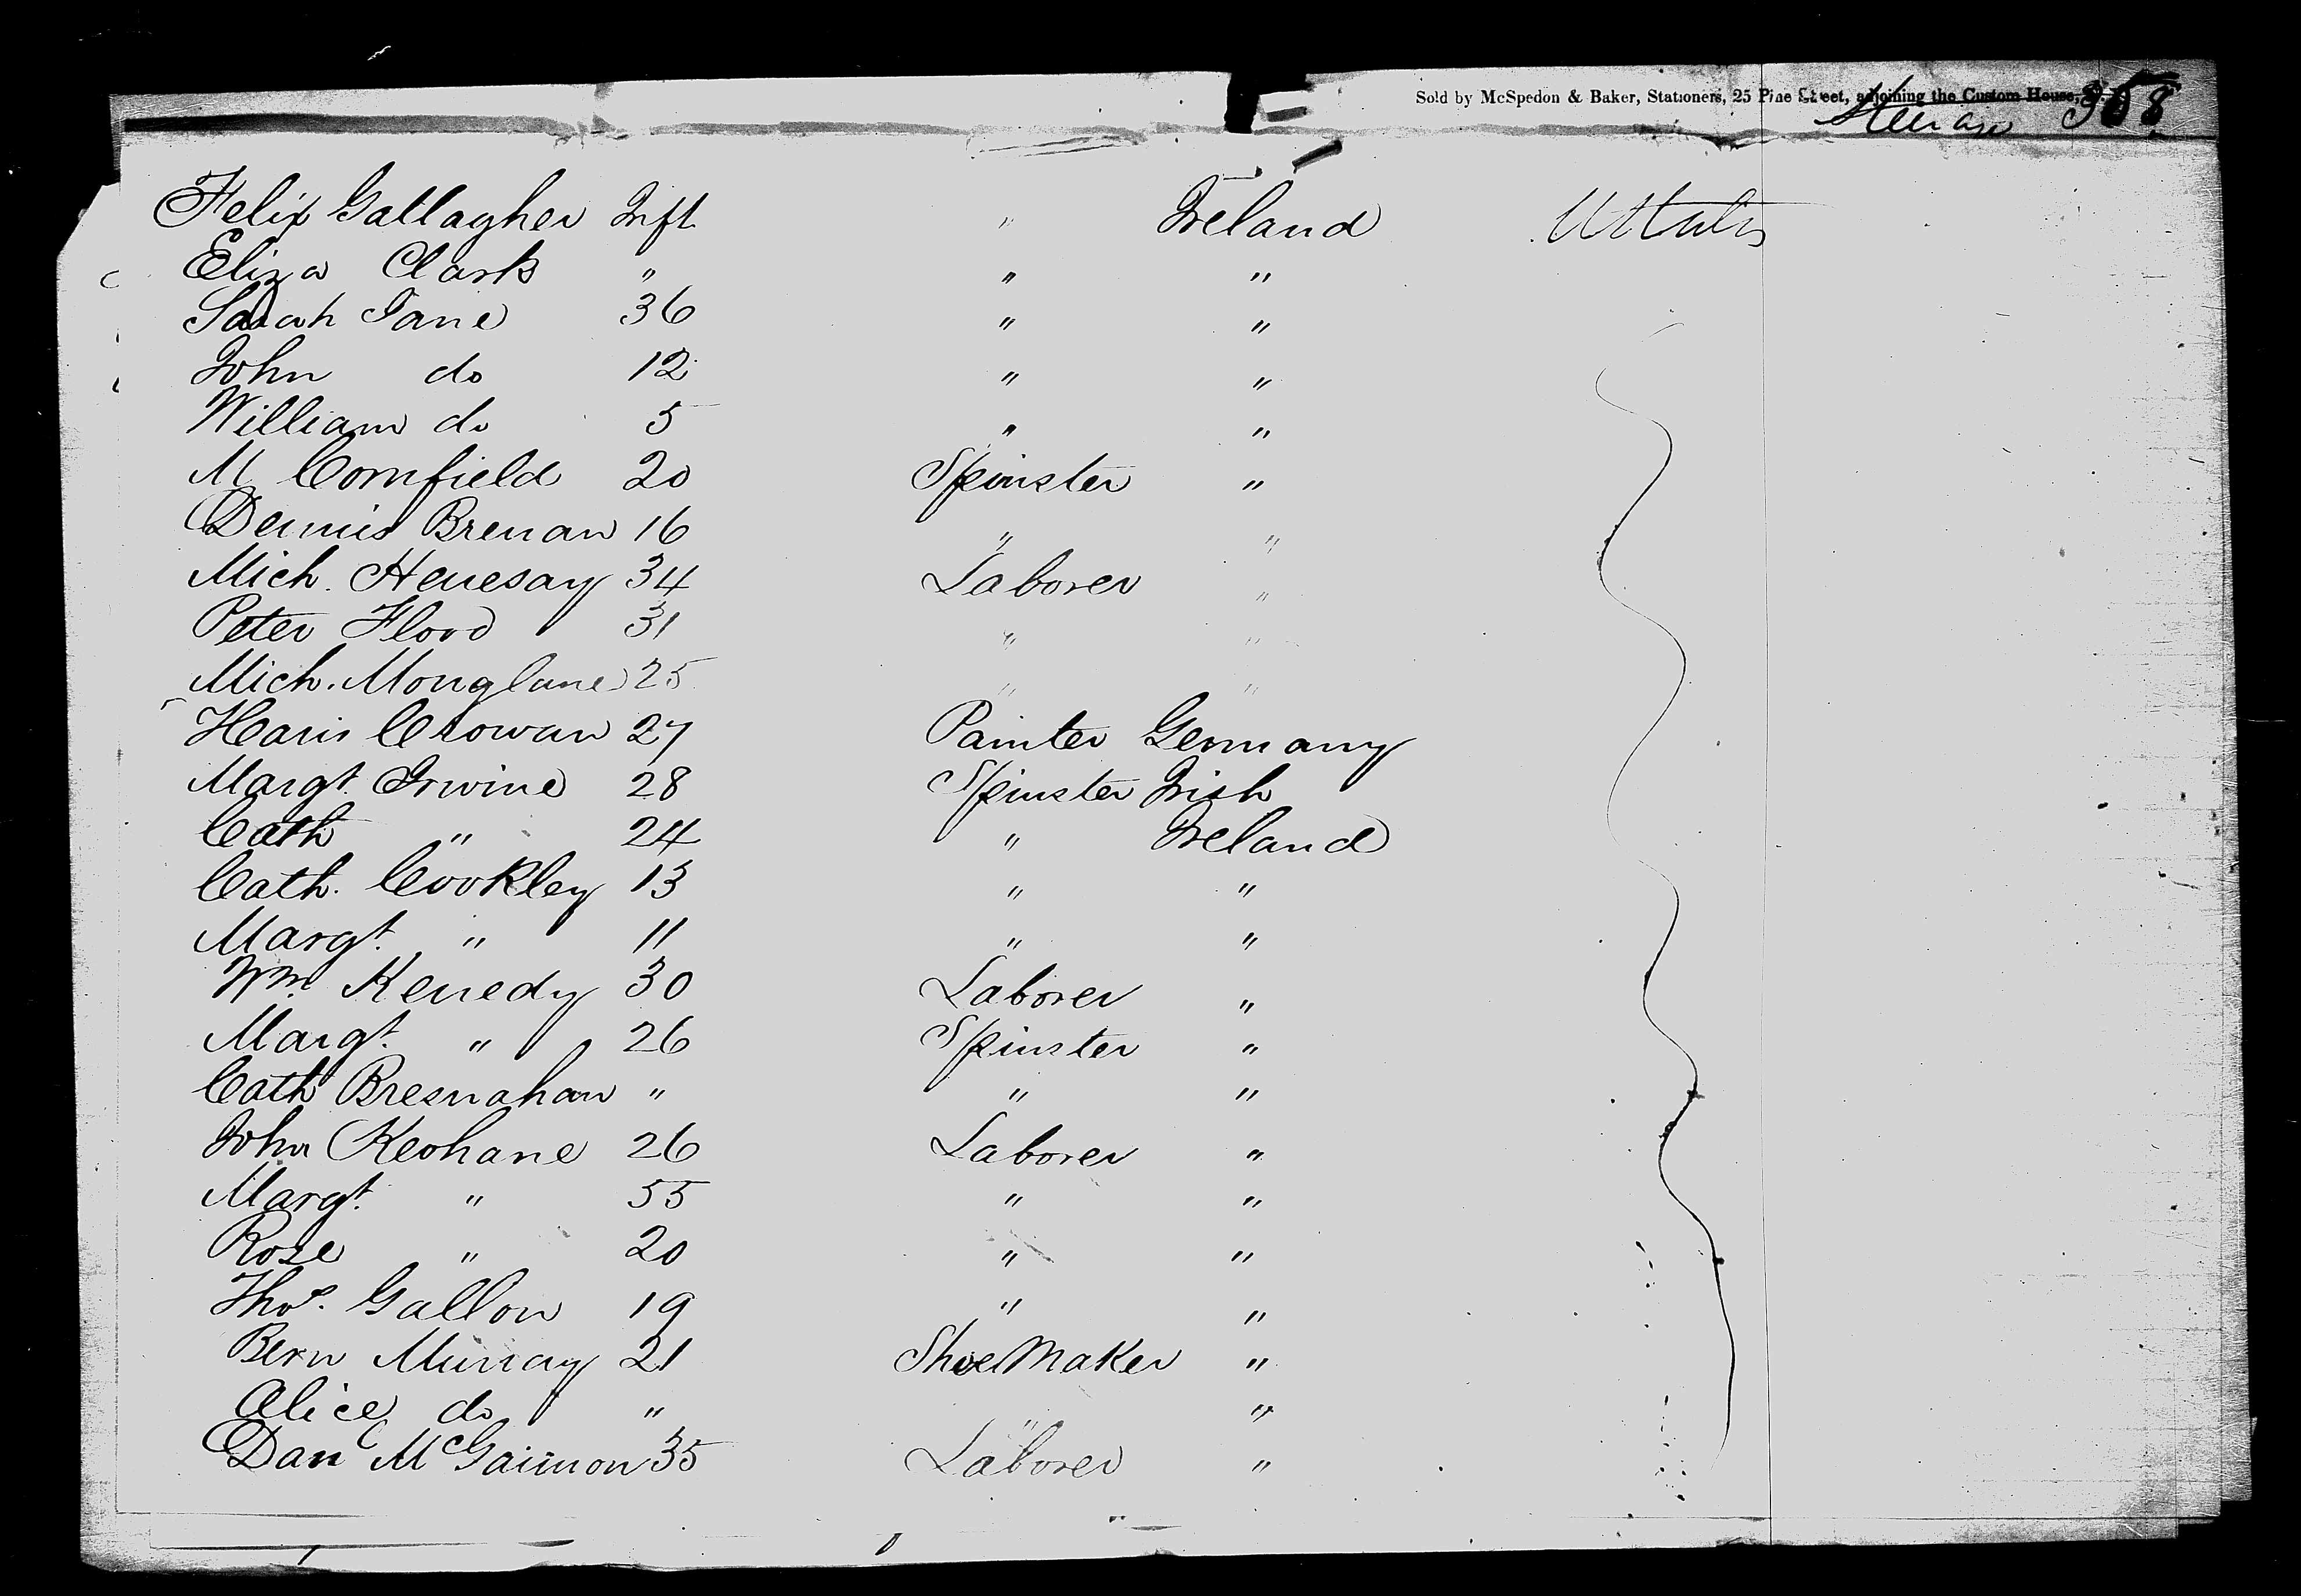 Sold by McSpedon & Baker, Stationers, 25 Pine Street, adjoining the Custom House,
358
Felix Gallagher Inft " Ireland U States
Eliza Clark " " "
Sarah Jane 36 " "
John do 12 " "
William do 5 " "
M Cornfield 20 Spinster "
Dennis Brenan 16 " "
Mich. Henesay 34 Laborer "
Peter Flood 31 " "
Mich. Monglane 25 " "
Haris Crowan 27 Painter Germany
Margt. Irwine 28 Spinster Irish
Cath " 24 " Ireland
Cath. Cookley 13 " "
Margt. " 11 " "
Wm. Kenedy 30 Laborer "
Margt. " 26 Spinster "
Cath Bresnahan " " "
John Keohane 26 Laborer "
Margt. " 55 " "
Rose " 20 " "
Thos. Gallon 19 " "
Bern Murray 21 Shoe Maker "
Alice do " " "
Dan McGaimon 35 Laborer "